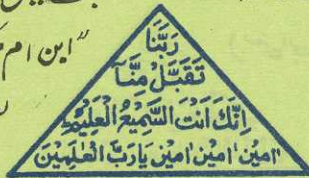 "ابن ام
رَبَّنَا
تَقَبَّلْ مِنَّآ
اِنَّكَ اَنْتَ السَّمِيْعُ الْعَلِيْمُ
امين امين امين يَارَبَّ الْعٰلَمِيْنَ